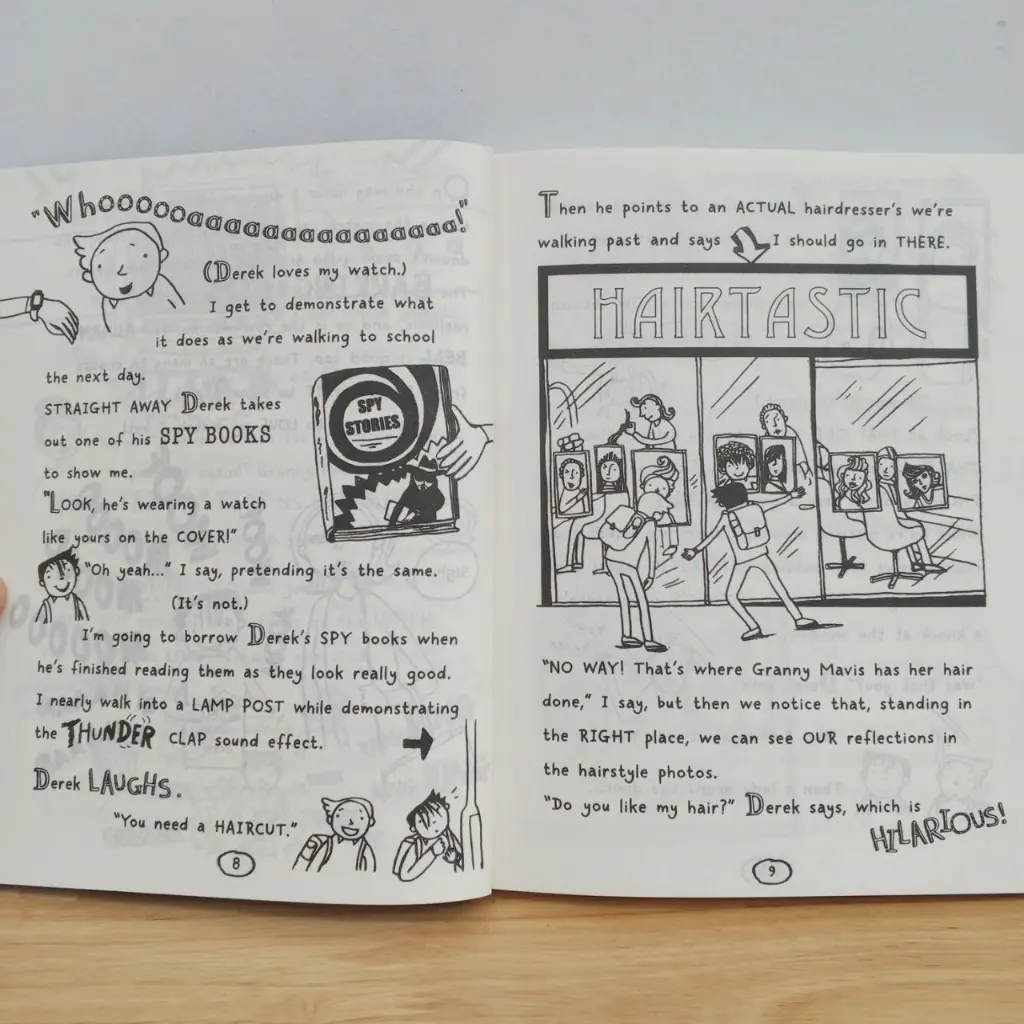 "Whooooooaaaaaaaaaaaaaaaa!"
(Derek loves my watch.)
I get to demonstrate what
it does as we're walking to school
the next day.
STRAIGHT AWAY Derek takes
out one of his SPY BOOKS
to show me.
"LOOK, he's wearing a watch
like yours on the COVER!"
SPY
STORIES
"Oh yeah..." I say, pretending it's the same.
(It's not.)
I'm going to borrow Derek's SPY books when
he's finished reading them as they look really good.
I nearly walk into a LAMP POST while demonstrating
the THUNDER CLAP sound effect.
Derek LAUGHS.
"You need a HAIRCUT."
8
Then he points to an ACTUAL hairdresser's we're
walking past and says I should go in THERE.
HAIRTASTIC
"NO WAY! That's where Granny Mavis has her hair
done," I say, but then we notice that, standing in
the RIGHT place, we can see OUR reflections in
the hairstyle photos.
"Do you like my hair?" Derek says, which is
HILARIOUS!
9